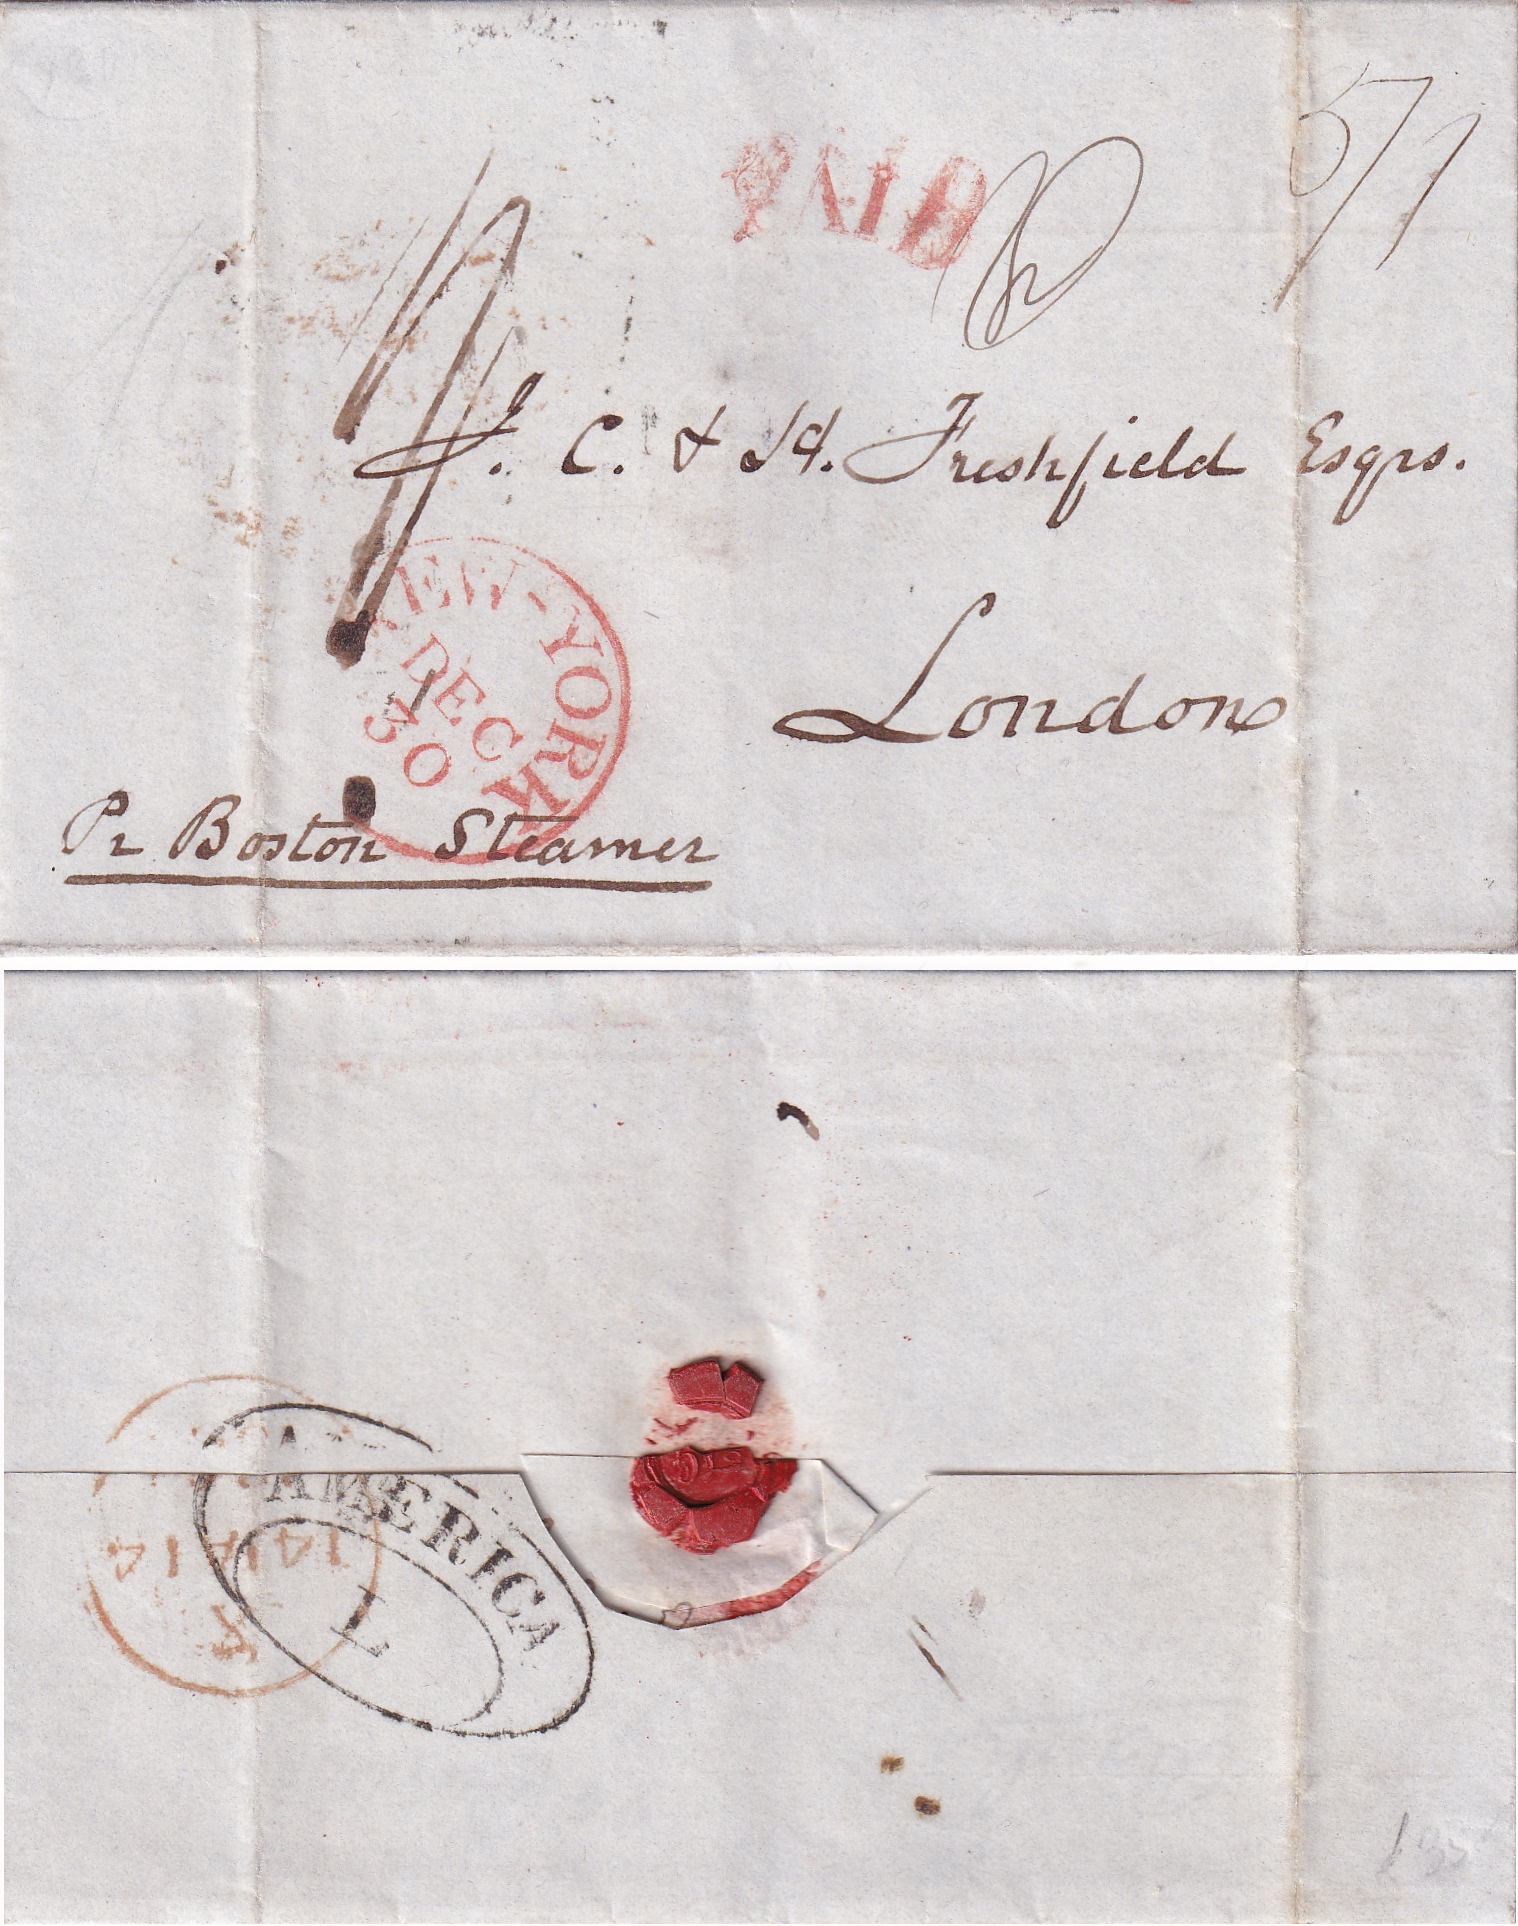 PAID
5/1
J. C. & H. Freshfield Esqrs.
London
NEW-YORK
DEC
30
Pr Boston Steamer
AMERICA
L